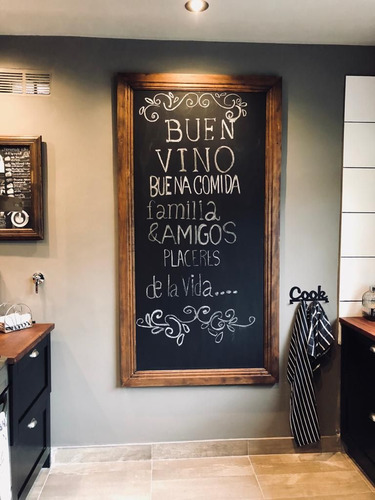 BUEN
VINO
BUENA COMIDA
familia
&AMIGOS
PLACERES
de la vida....
Cook